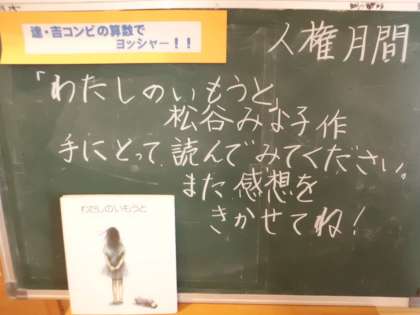 達・吉コンビの算数で
ヨッシャー！！
人権月間
「わたしのいもうと」
松谷みな子作
手にとって読んでみてください。
また感想を
きかせてね！
わたしのいもうと